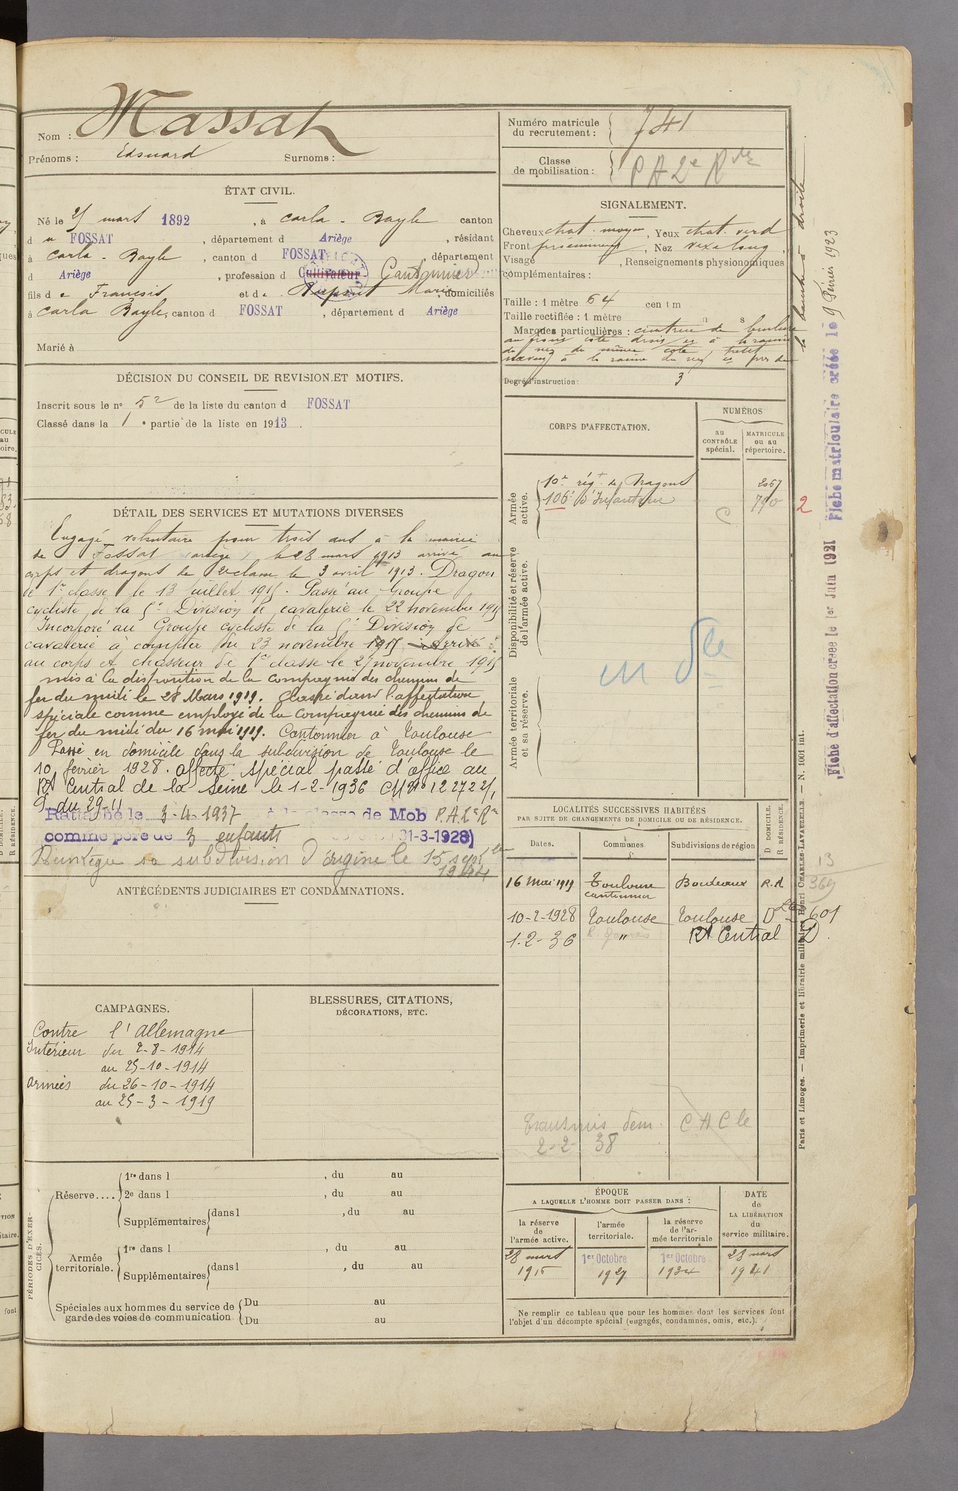 Nom : Massat
Prénoms : Edouard Surnoms :
ÉTAT CIVIL.
Né le 25 mars 1892, à Carla-Bayle canton
d u FOSSAT, département d Ariège, résidant
à Carla-Bayle, canton d FOSSAT, département
d Ariège, profession d Cultivateur Cantonnier
fils d e François et d e Marie, domiciliés
à Carla Bayle, canton d FOSSAT, département d Ariège
Marié à
DÉCISION DU CONSEIL DE REVISION ET MOTIFS.
Inscrit sous le n° 52 de la liste du canton d FOSSAT
Classé dans la 1e partie de la liste en 1913.
DÉTAIL DES SERVICES ET MUTATIONS DIVERSES
Engagé volontaire pour trois ans à la mairie
de Fossat (ariège), le 28 mars 1913 arrivé au
corps et dragons de 2e classe le 3 avril 1913. Dragon
de 1re classe le 13 juillet 1915. Passé au Groupe
cycliste de la 5e Division de cavalerie le 22 novembre 1915
Incorporé au Groupe cycliste de la 5e Division de
cavalerie à compter du 23 novembre 1915
au corps et chasseur de 1re classe le 23 novembre 1915
mis à la disposition de la compagnie des chemins de
fer du midi le 28 Mars 1919. Classé dans l'affectation
spéciale comme employé de la Compagnie des chemins de
fer du midi du 16 mai 1919. Cantonnier à Toulouse
Passé en domicile dans la subdivision de Toulouse le
10 février 1928. affecté spécial passé d'office au
Rt Central de la Seine le 1-2-1936
du 29.11
Rattaché le 3-4-1937 à la classe de Mob P.A.2e Rve
comme père de 3 enfants 31-3-1928)
sa subdivision d'origine le 15 sept
1944
ANTÉCÉDENTS JUDICIAIRES ET CONDAMNATIONS.
CAMPAGNES.
Contre l'Allemagne
Intérieur du 2-8-1914
au 25-10-1914
Armées du 26-10-1914
au 25-3-1919
BLESSURES, CITATIONS,
DÉCORATIONS, ETC.
PÉRIODES D'EXERCICES.
Réserve....
1re dans l , du au
2e dans l , du au
Supplémentaires dans l , du au
Armée territoriale.
1re dans l , du au
Supplémentaires dans l , du au
Spéciales aux hommes du service de
garde des voies de communication
Du au
Du au
Numéro matricule
du recrutement : 741
Classe
de mobilisation : P A 2e Rve
SIGNALEMENT.
Cheveux chat. moyen, Yeux chat. verd
Front, Nez vexe long
Visage , Renseignements physionomiques
complémentaires :
Taille : 1 mètre 64 centim
Taille rectifiée : 1 mètre
Marques particulières : cicatrice de brulure
au front coté droit et à la racine
du nez du même coté
la racine du nez
la bouche à droite
Degré d'instruction : 3
CORPS D'AFFECTATION.
NUMÉROS
au
CONTRÔLE
spécial.
MATRICULE
ou au
répertoire.
Armée
active.
10e rég. de Dragons 2067
106e d'Infanterie 2
C
Disponibilité et réserve
de l'armée active.
Armée territoriale
et sa réserve.
LOCALITÉS SUCCESSIVES HABITÉES
PAR SUITE DE CHANGEMENTS DE DOMICILE OU DE RÉSIDENCE.
Dates. Communes. Subdivisions de région D DOMICILE. R RÉSIDENCE.
16 Mai 1919 Toulouse Bordeaux R.d
cantonnier
10-2-1928 Toulouse Toulouse D 601
1-2-36 " Rt Central D.
13
369
Transmis dem. C A C le
2-2-38
ÉPOQUE
A LAQUELLE L'HOMME DOIT PASSER DANS :
la réserve
de
l'armée active.
l'armée
territoriale.
la réserve
de l'ar-
mée territoriale
DATE
de
LA LIBÉRATION
du
service militaire.
28 mars
1916
1er Octobre
1927
1er Octobre
1934
28 mars
1941
Ne remplir ce tableau que pour les hommes dont les services font
l'objet d'un décompte spécial (engagés, condamnés, omis, etc.).
Fiche d'affectation créée le 1er Juin 1921 Fiche matriculaire créée le 9 Février 1923
Paris et Limoges. — Imprimerie et librairie militaires Henri CHARLES-LAVAUZELLE. — N. 1001 int.